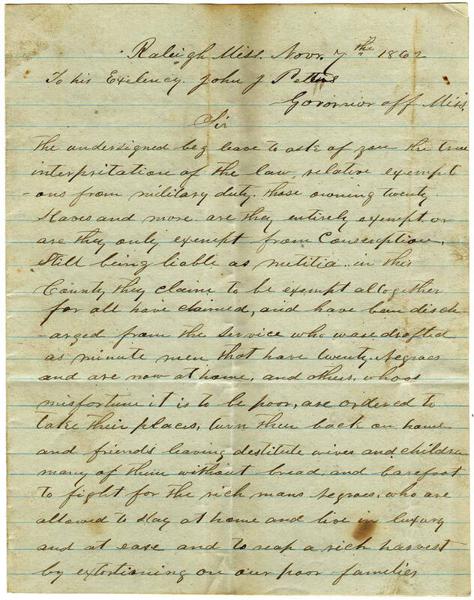 Raleigh Miss. Nov. 7the 1862
To his Exilency. John J Pettus
Govornior off Miss.
Sir
the undersigned beg leave to ask of you the true
interpritation of the law, relative exempt
-ons from military duty. those owning twenty
slaves and more are they entirely exempt or
are they only exempt from Conscription,
Still being liable as militia.. in this
County they claim to be exempt altogether
for all have claimed, and have been disch
-arged from the service who wase drafted
as minute men that have twenty Negroes
and are now at home, and others, whoos
misfortune it is to be poor, are ordered to
take their places, turn their back on home
and friends leaving destitute wives and children
many of them without bread and barefoot
to fight for the rich mans Negroes, who are
allowed to stay at home and live in luxury
and at ease and to reap a rich harvest
by extortioning on our poor families